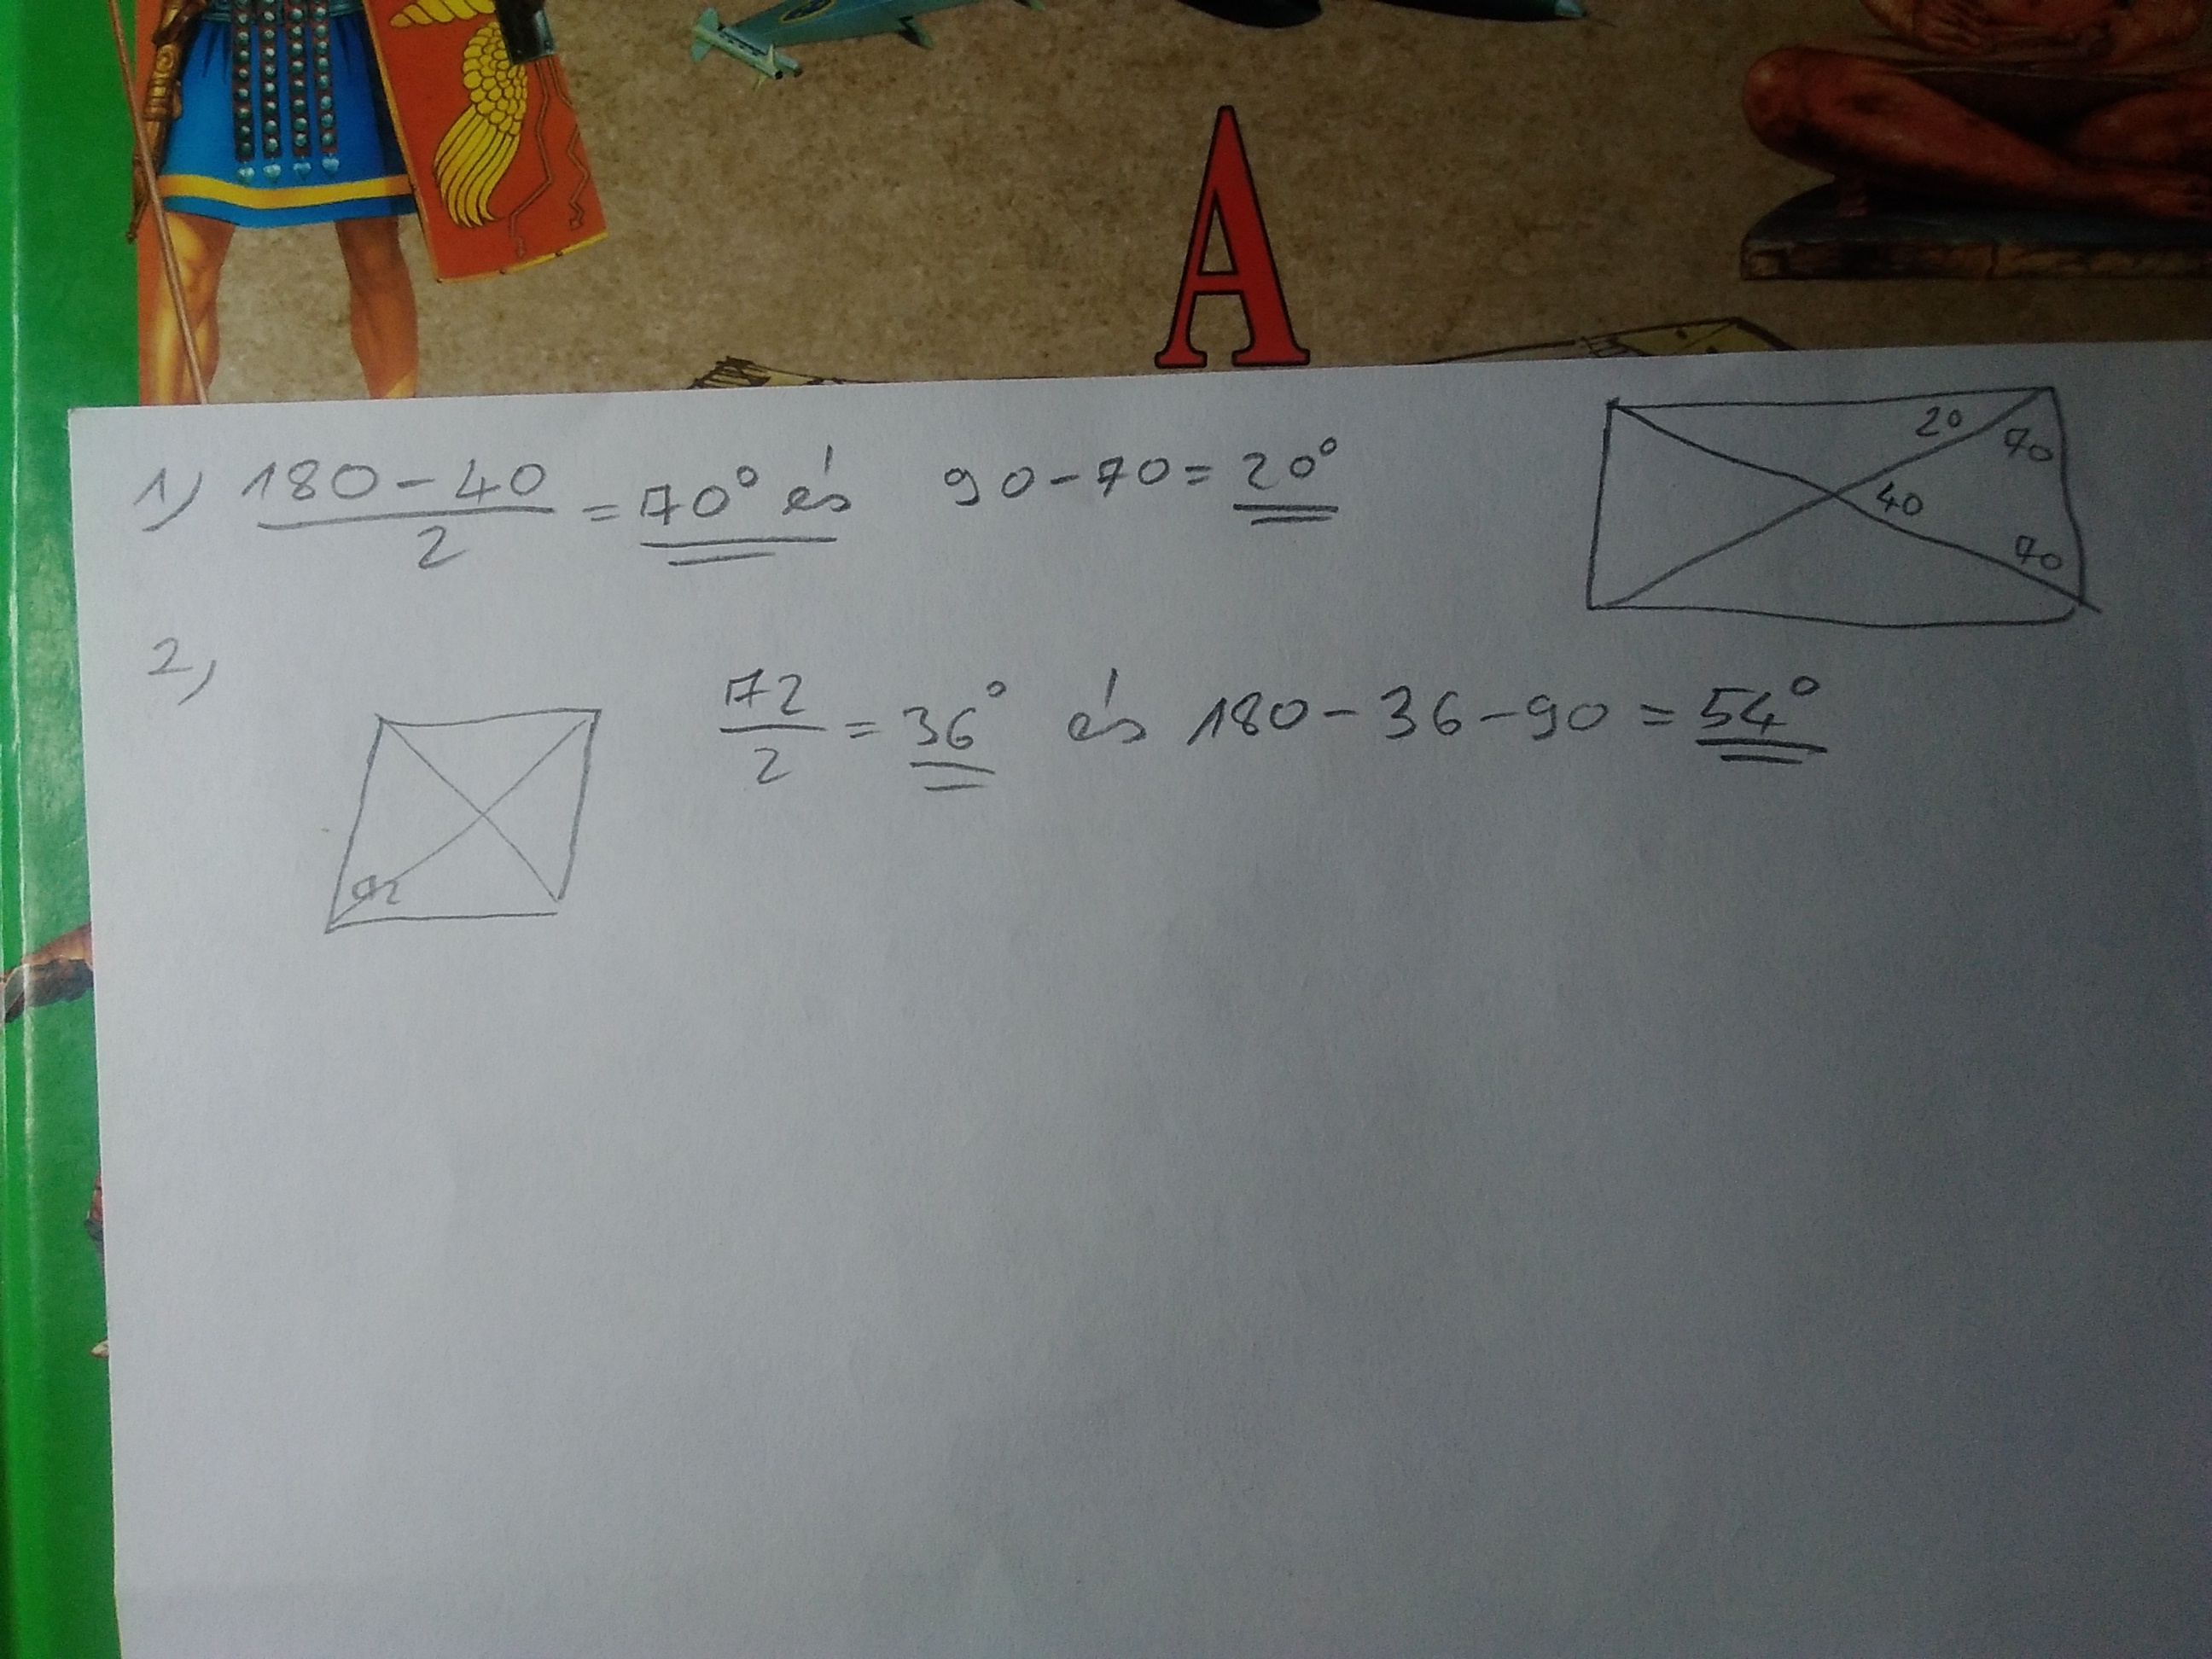 A
1) 180-40/2 = 70° és 90-70 = 20°
20
70
40
70
2,
72/2 = 36° és 180-36-90 = 54°